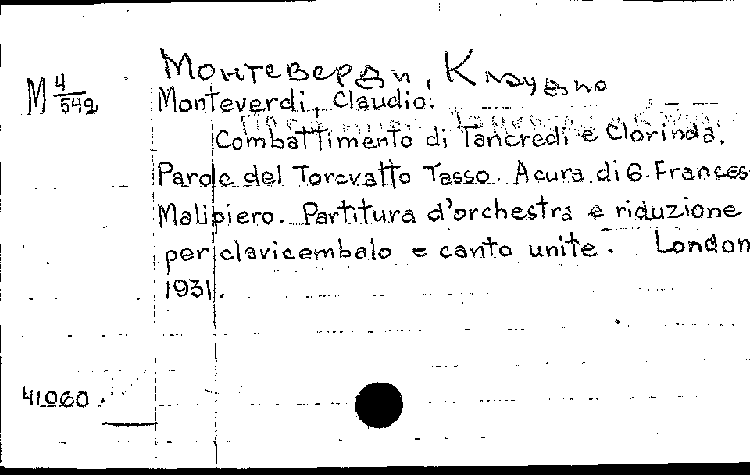 Монтеверди, Клаудио
M 4/549
Monteverdi, Claudio.
Combattimento di Tancredi e Clorinda.
Parole del Torevatto Tasso. A cura di G. Frances
Malipiero. Partitura d'orchestra e riduzione
per clavicembalo e canto unite. London
1931.
41060.